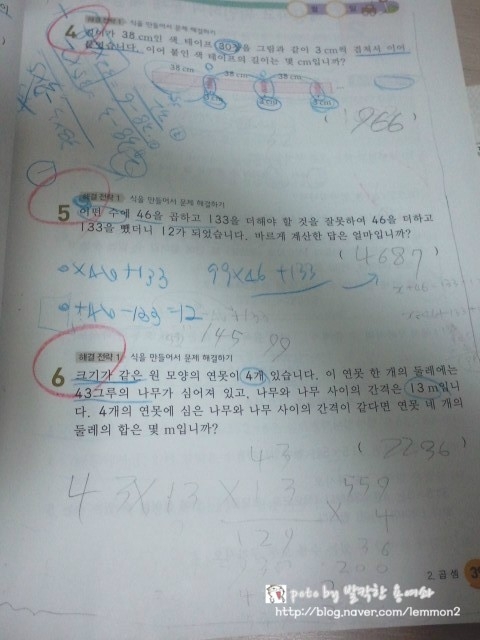 월 일
해결 전략 1 식을 만들어서 문제 해결하기
4 길이가 38 cm인 색 테이프 30장을 그림과 같이 3 cm씩 겹쳐서 이어
붙였습니다. 이어 붙인 색 테이프의 길이는 몇 cm입니까?
38 cm 38 cm 38 cm
3 cm 3 cm 3 cm
( )
해결 전략 1 식을 만들어서 문제 해결하기
5 어떤 수에 46을 곱하고 133을 더해야 할 것을 잘못하여 46을 더하고
133을 뺐더니 12가 되었습니다. 바르게 계산한 답은 얼마입니까?
( 4687 )
×46+133 99×46+133
+46-133=12
145 99
해결 전략 1 식을 만들어서 문제 해결하기
6 크기가 같은 원 모양의 연못이 4개 있습니다. 이 연못 한 개의 둘레에는
43그루의 나무가 심어져 있고, 나무와 나무 사이의 간격은 13 m입니
다. 4개의 연못에 심은 나무와 나무 사이의 간격이 같다면 연못 네 개의
둘레의 합은 몇 m입니까?
( 2236 )
43×13
43
×13
129
559
×4
36
200
2. 곱셈
http://blog.naver.com/lemmon2